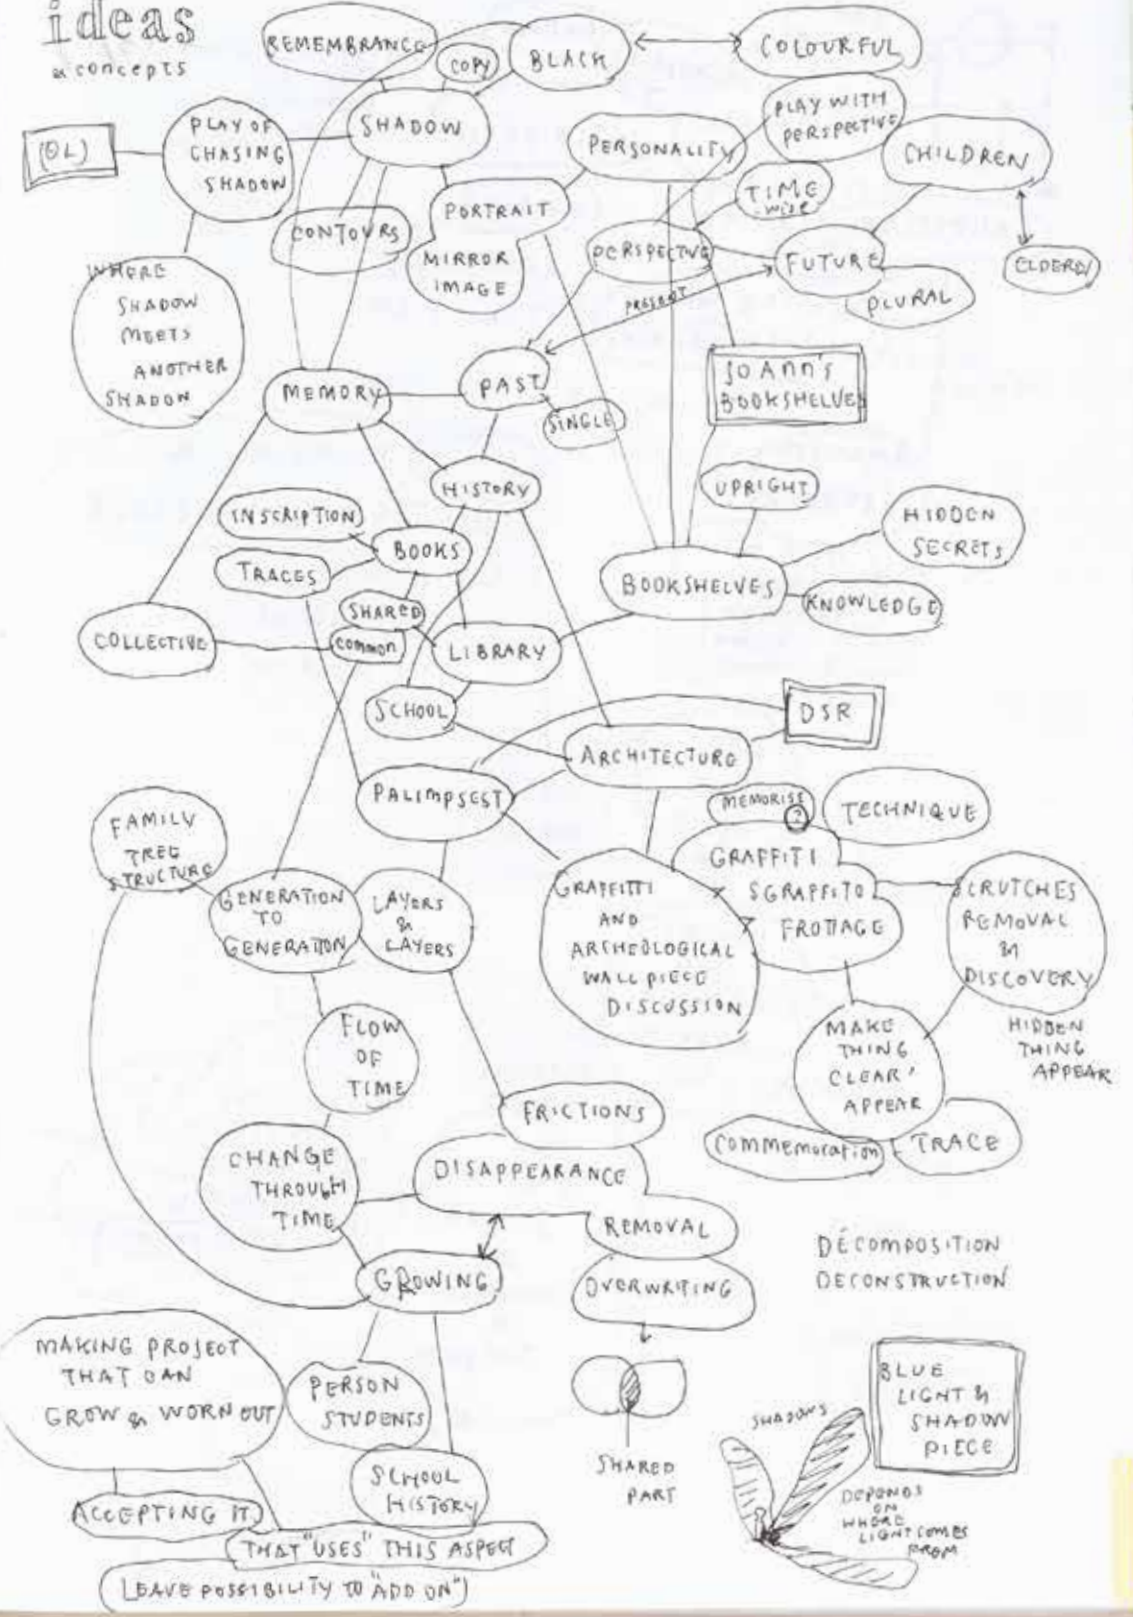 ideas
& concepts
REMEMBRANCE
COPY
BLACK
COLOURFUL
(OL)
PLAY OF
CHASING
SHADOW
SHADOW
PERSONALITY
PLAY WITH
PERSPECTIVE
CHILDREN
CONTOURS
PORTRAIT
MIRROR
IMAGE
TIME
-wise
PERSPECTIVE
FUTURE
ELDERLY
PLURAL
PRESENT
WHERE
SHADOW
MEETS
ANOTHER
SHADOW
MEMORY
PAST
SINGLE
JO ANN'S
BOOKSHELVES
HISTORY
UPRIGHT
INSCRIPTION
BOOKS
HIDDEN
SECRETS
TRACES
BOOKSHELVES
KNOWLEDGE
SHARED
COLLECTIVE
common
LIBRARY
SCHOOL
DSR
ARCHITECTURE
PALIMPSEST
MEMORISE
?
TECHNIQUE
FAMILY
TREE
STRUCTURE
GRAFFITI
SGRAFFITO
FROTTAGE
GENERATION
TO
GENERATION
LAYERS
&
LAYERS
GRAFFITTI
AND
ARCHEOLOGICAL
WALL PIECE
DISCUSSION
SCRUTCHES
REMOVAL
&
DISCOVERY
HIDDEN
THING
APPEAR
FLOW
OF
TIME
MAKE
THING
CLEAR'
APPEAR
FRICTIONS
COMMEMORATION
TRACE
CHANGE
THROUGH
TIME
DISAPPEARANCE
REMOVAL
GROWING
OVERWRITING
DECOMPOSITION
DECONSTRUCTION
MAKING PROJECT
THAT CAN
GROW & WORN OUT
PERSON
STUDENTS
SHARED
PART
BLUE
LIGHT &
SHADOW
PIECE
SHADOWS
DEPENDS
ON
WHERE
LIGHT COMES
FROM
SCHOOL
HISTORY
ACCEPTING IT
THAT "USES" THIS ASPECT
(LEAVE POSSIBILITY TO "ADD ON")